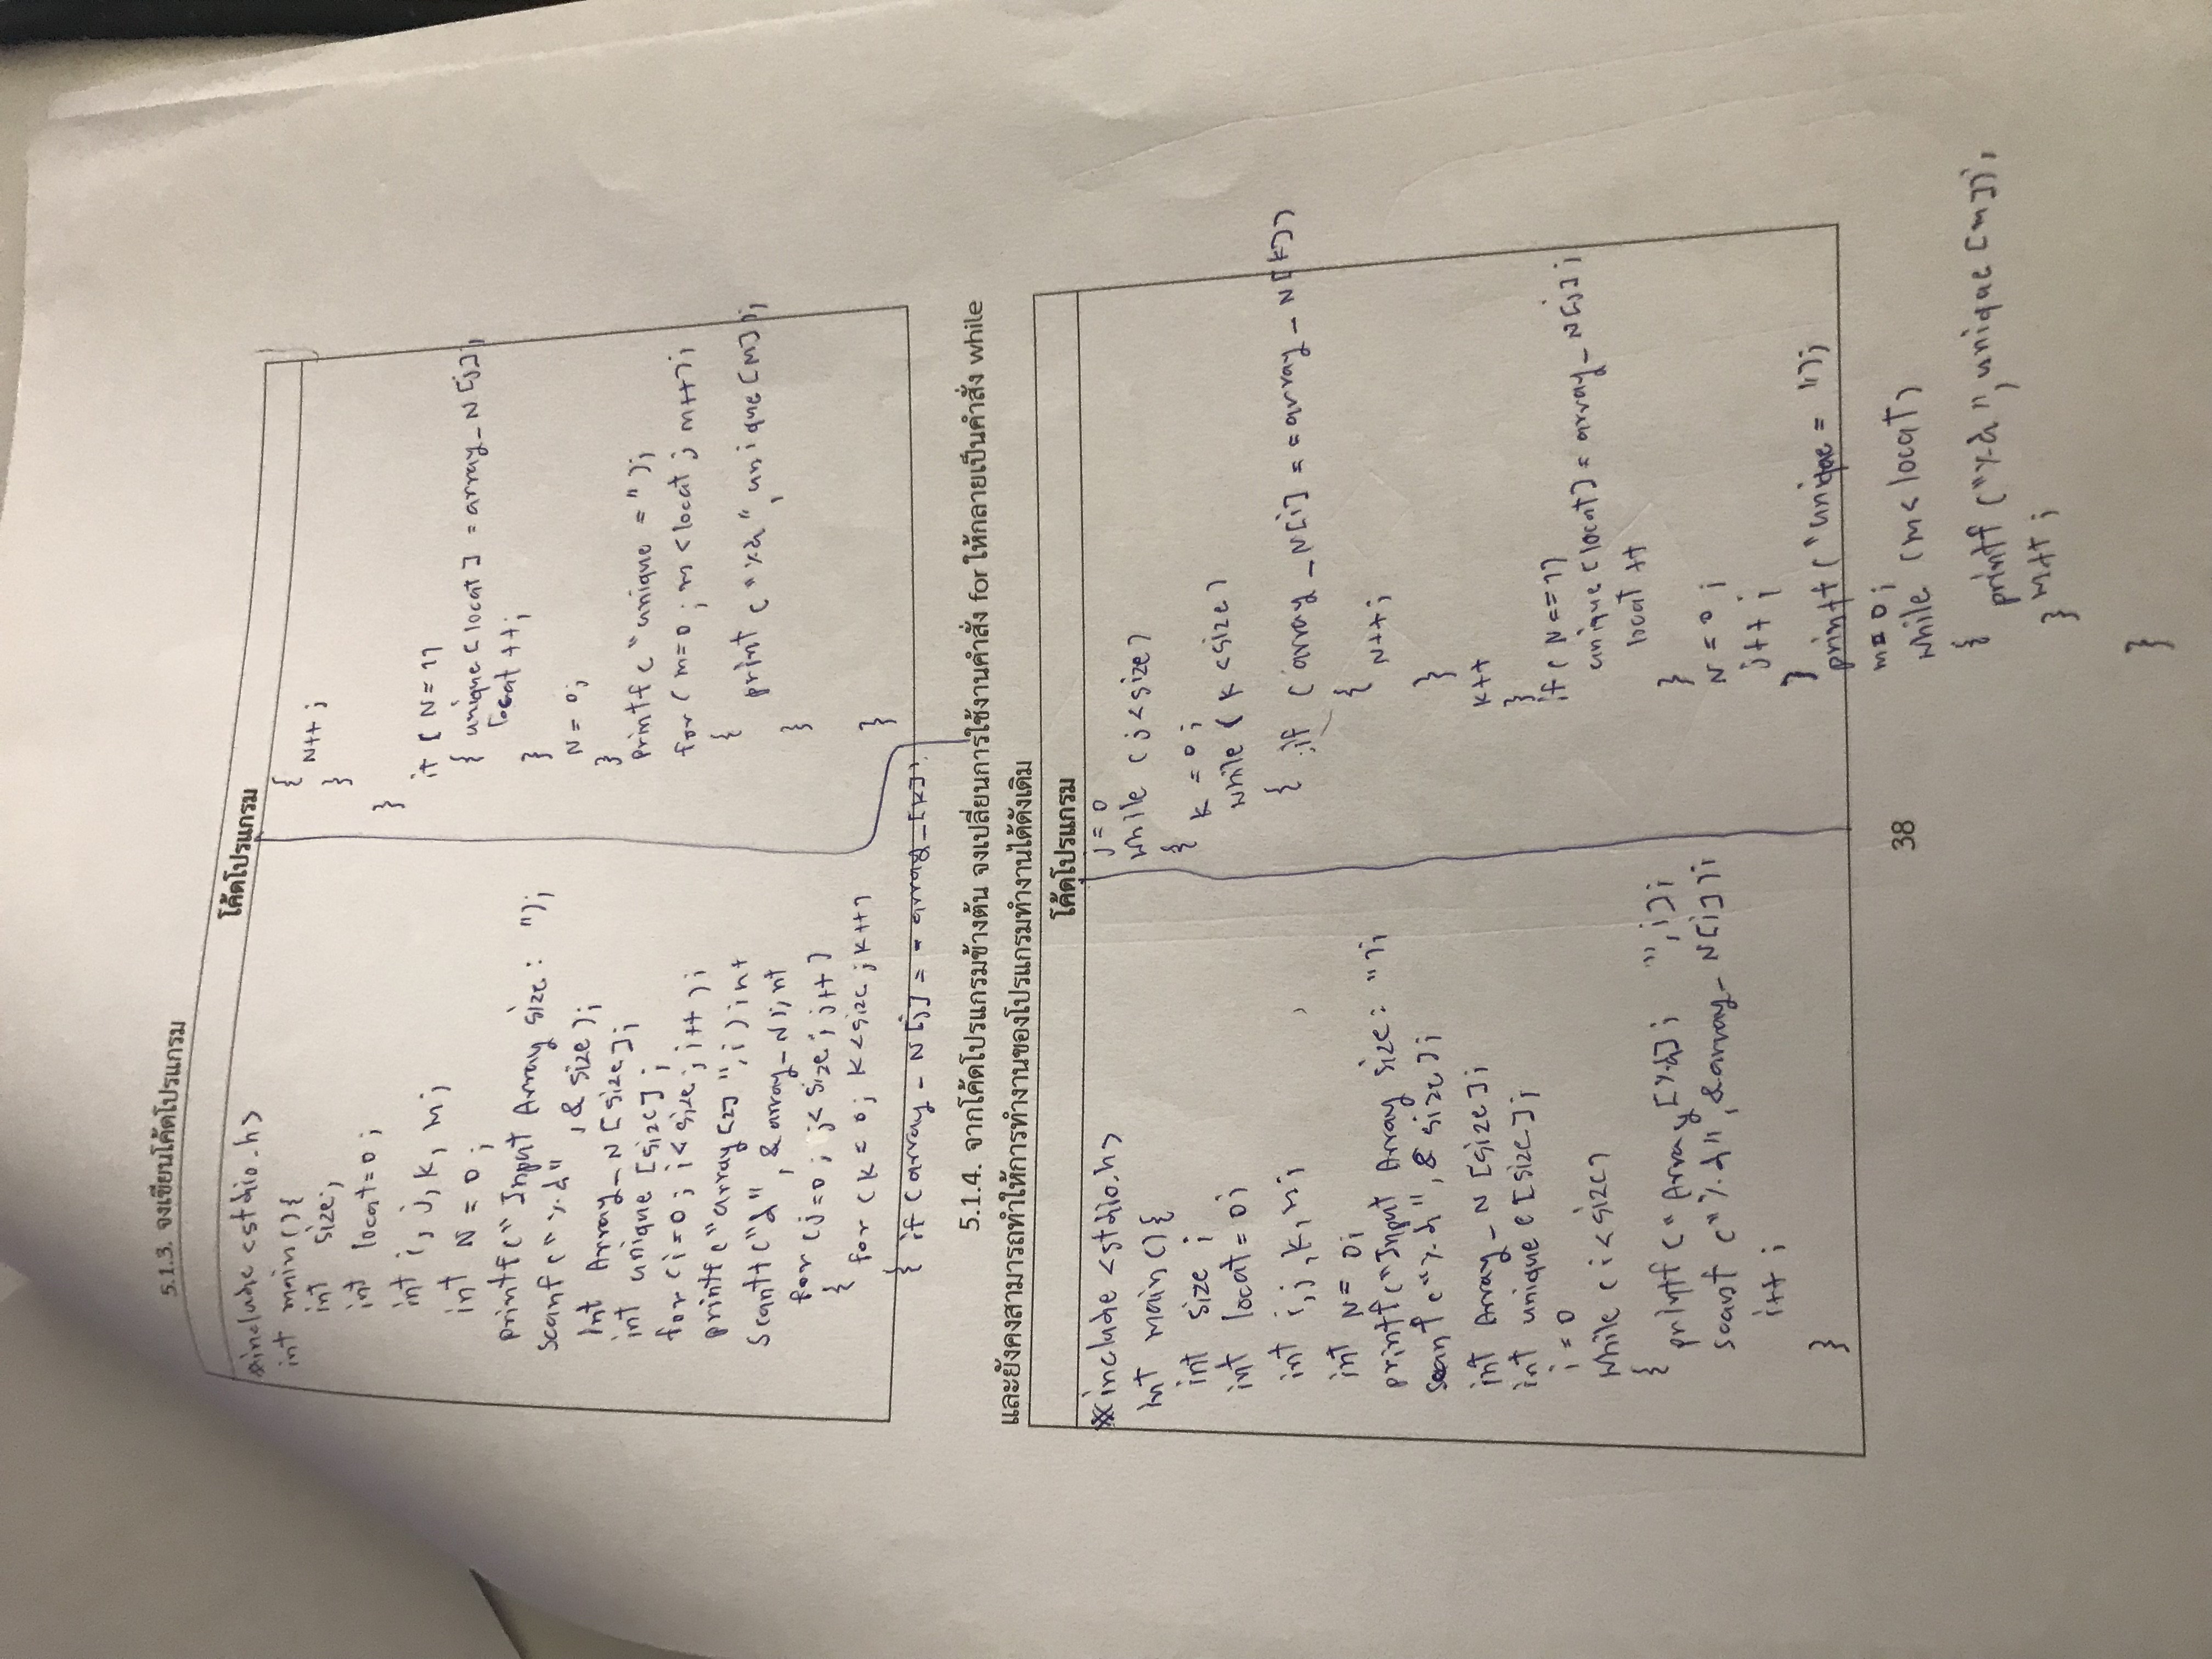 5.1.3. จงเขียนโค้ดโปรแกรม
โค้ดโปรแกรม
#include <stdio.h>
int main(){
int size;
int locat=0;
int i, j, k, m;
int N = 0;
printf("Input Array size: ");
scanf("%d", & size);
Int Array_N[size];
int unique [size];
for (i=0; i<size; i++);
printf("array[2] ",i) int
Scantt("d", &array_N i, nt
for (j=0; j<size; j++)
{
for (k = 0; k<size; k++)
{ if (array_N[j] == array_[k])
{
N++;
}
}
if (N=1)
{ unique[locat] = array_N[j];
locat ++;
}
N = 0;
}
printf("unique =");
for (m=0; m<locat; m++);
{
print ("%d", unique[m]);
}
}
5.1.4. จากโค้ดโปรแกรมข้างต้น จงเปลี่ยนการใช้งานคำสั่ง for ให้กลายเป็นคำสั่ง while
และยังคงสามารถทำให้การทำงานของโปรแกรมทำงานได้ดังเดิม
โค้ดโปรแกรม
#include <stdio.h>
int main(){
int size;
int locat=0;
int i,j,k,m;
int N= 0;
printf("Input Array size: ");
scanf("%d", & size);
int Array_N [size];
int unique e[size];
i = 0
while (i<size)
{
printf("Array[%d]; ",i);
scanf ("%d", &array_N[i]);
i++;
}
j=0
while (j<size)
{
k = 0;
while (k<size)
{ if (array_N[i] == array_N[k])
{
N++;
}
k++
}
if (N==1)
unique[locat] = array_N[j];
locat ++
}
N = 0;
j++;
}
printf("unique = ");
m=0;
while (m<locat)
{
printf ("%d", unique[m]);
m++;
}
}
38